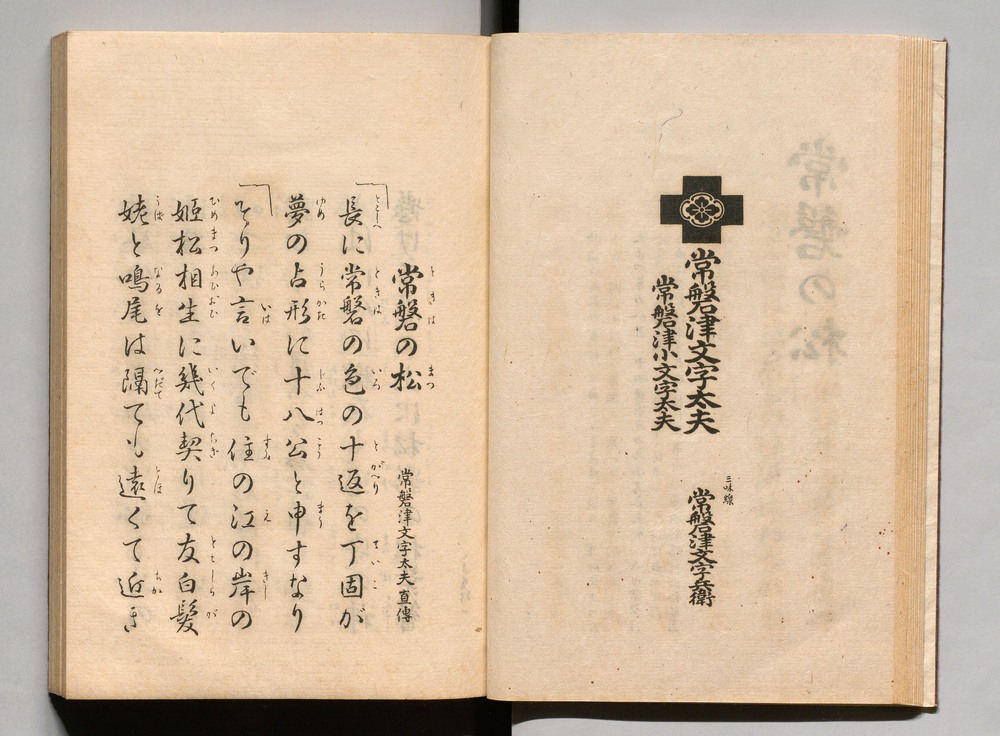 常磐津文字太夫
常磐津小文字太夫
三味線
常磐津文字兵衛
常磐の松
常磐津文字太夫直傳
長に常磐の色の十返を丁固が
夢の占形に十八公と申すなり
そりや言いでも住の江の岸の
姫松相生に幾代契りて友白髪
姥と鳴尾は隔ても遠くて近き